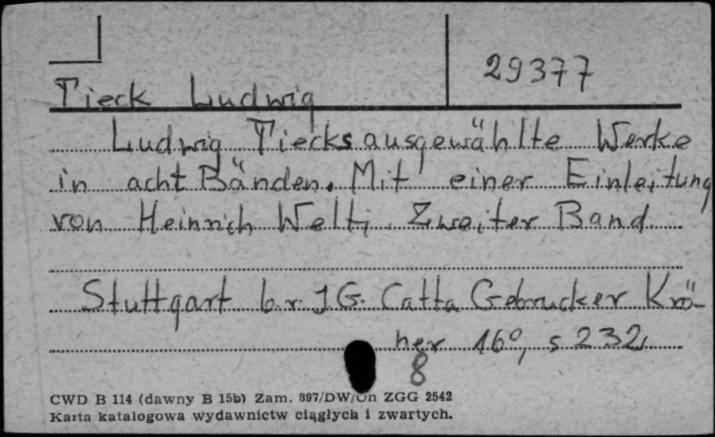 29377
Tieck Ludwig
Ludwig Tiecks ausgewählte Werke
in acht Bänden. Mit einer Einleitung
von Heinrich Welti. Zweiter Band
Stuttgart b.r. J.G. Catta Gebrucker Krö-
ner 16°, s 232,
8
CWD B 114 (dawny B 15b) Zam. 897/DW/Un ZGG 2542
Karta katalogowa wydawnictw ciągłych i zwartych.